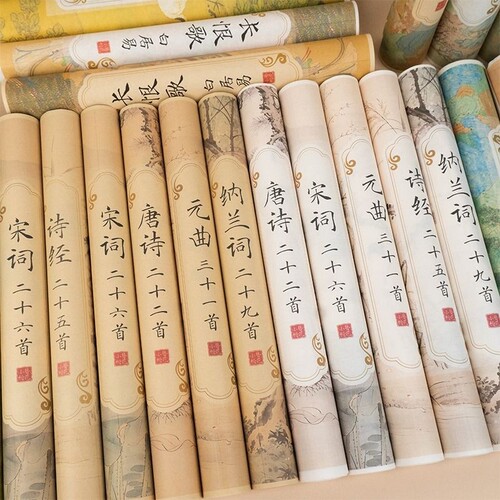 长恨歌 白居易
长恨歌 白居易
宋词 二十六首
诗经 二十五首
宋词 二十六首
唐诗 二十二首
元曲 三十一首
纳兰词 二十九首
唐诗 二十二首
宋词 二十六首
元曲 三十一首
诗经 二十五首
纳兰词 二十九首